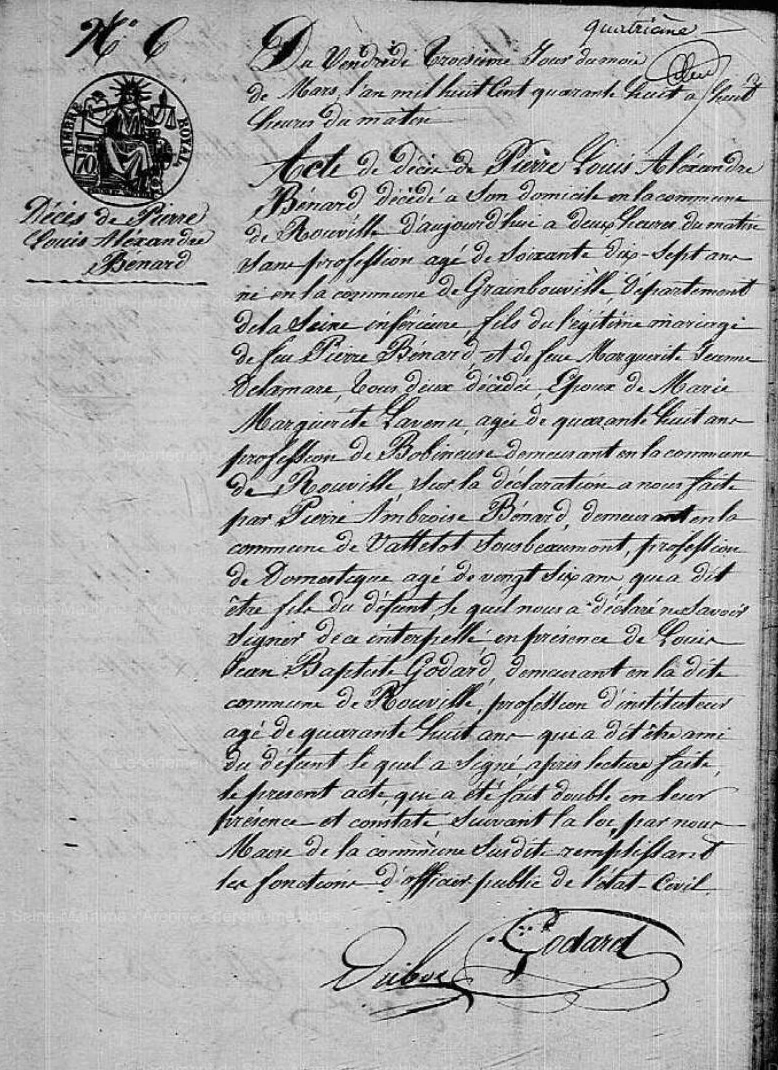 N.° 6
quatrième
Du Vendredi troisième Jour du mois
de Mars, l'an mil huit Cent quarante huit a huit
heures du matin
TIMBRE ROYAL
Acte de décès de Pierre Louis Aléxandre
Bénard décédé a Son domicile en la commune
de Rouville d'aujourd'hui a deux heures du matin
Sans profession agé de Soixante dix-Sept ans
né en la commune de Grainbouville, Département
de la Seine inférieure, fils du légitime mariage
de feu Pierre Bénard, et de feue Marguerite Jeanne
Delamare, tous deux décédés, Epoux de Marie
Marguerite Lavenu, agée de quarante huit ans
profession de Bobineuse demeurant en la commune
de Rouville Sur la déclaration a nous faite
par Pierre Ambroise Bénard, demeurant en la
commune de Vattetot Sousbeaumont, profession
de Domestique agé de vingt Six ans qui a dit
être fils du défunt, le quel nous a déclaré ne Savoir
Signer de ce interpellé, en présence de Louis
Jean Baptiste Godard, demeurant en la dite
commune de Rouville, profession d'instituteur
agé de quarante huit ans qui a dit être ami
du défunt le quel a Signé après lecture faite,
le present acte, qui a été fait double en leur
présence et constaté, Suivant la loi, par nous
Maire de la commune Susdite remplissant
les fonctions d'officier public de l'état-Civil.
Décès de Pierre
Louis Aléxandre
Bénard
Godard